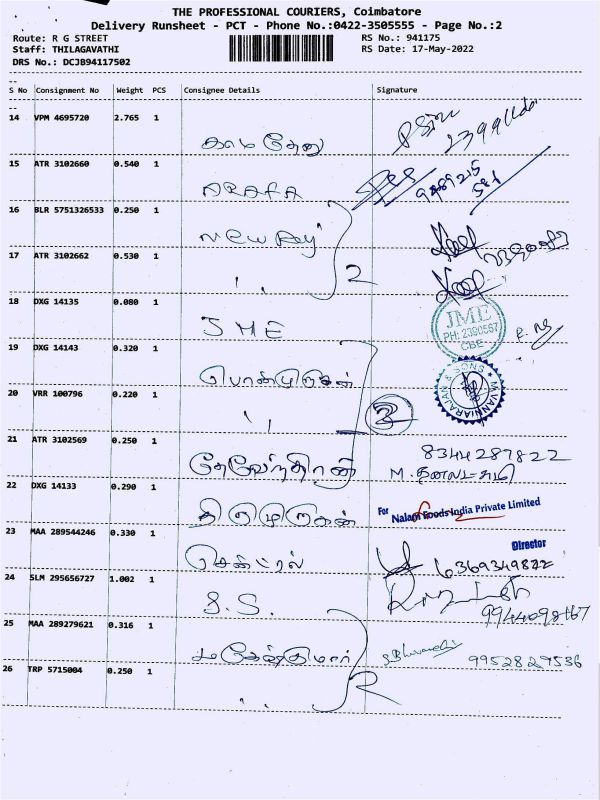 THE PROFESSIONAL COURIERS, Coimbatore
Delivery Runsheet - PCT - Phone No.:0422-3505555 - Page No.:2
Route: R G STREET RS No.: 941175
Staff: THILAGAVATHI RS Date: 17-May-2022
DRS No.: DCJB94117502
S No Consignment No Weight PCS Consignee Details Signature
14 VPM 4695720 2.765 1
காமதேனு
15 ATR 3102660 0.540 1
ARAFA
16 BLR 5751326533 0.250 1
New Ray
17 ATR 3102662 0.530 1
,, 2
18 DXG 14135 0.080 1
JME
JME
PH: 2390567
CBE
19 DXG 14143 0.320 1
பொன்முருகன்
M.VANNIARAJAN & SONS
20 VRR 100796 0.220 1
,,
21 ATR 3102569 0.250 1
தேவேந்திரணி 8344287822
22 DXG 14133 0.290 1
திருமுருகன் For Nalam Foods India Private Limited
23 MAA 289544246 0.330 1 Director
செக்ட்ரல் 6369349822
24 SLM 295656727 1.002 1
S.S. 9944098167
25 MAA 289279621 0.316 1
மகேஷ்குமார் 9952829536
26 TRP 5715004 0.250 1
,,